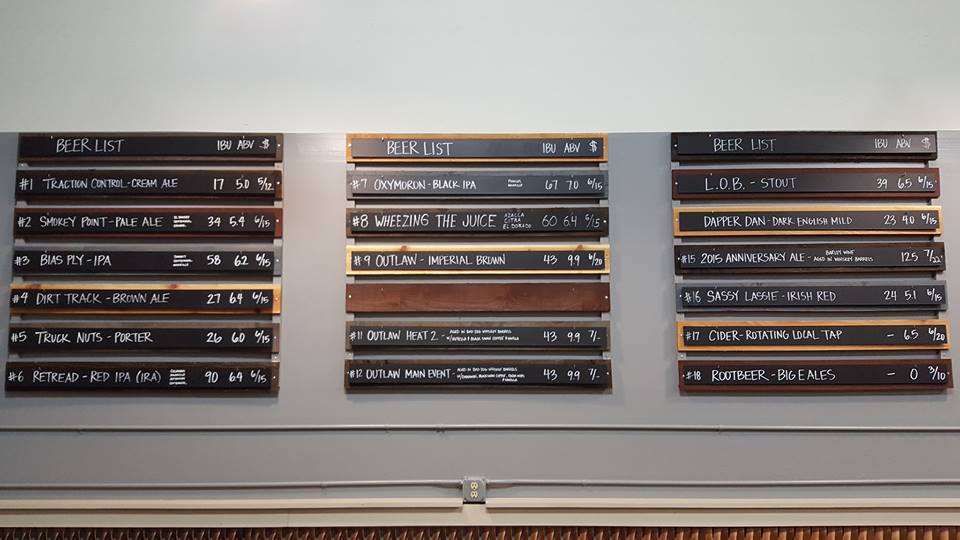 BEER LIST IBU ABV $
#1 TRACTION CONTROL-CREAM ALE 17 5.0 5/12
#2 SMOKEY POINT-PALE ALE 34 5.4 6/15
#3 BIAS PLY-IPA 58 6.2 6/15
#4 DIRT TRACK-BROWN ALE 27 6.4 6/15
#5 TRUCK NUTS-PORTER 26 6.0 6/15
#6 RETREAD-RED IPA (IRA) 90 6.4 6/15
BEER LIST IBU ABV $
#7 OXYMORON-BLACK IPA 67 7.0 6/15
#8 WHEEZING THE JUICE AZACCA CITRA EL DORADO 60 6.4 6/15
#9 OUTLAW-IMPERIAL BROWN 43 9.9 6/20
#11 OUTLAW HEAT 2- 43 9.9 7/-
#12 OUTLAW MAIN EVENT- 43 9.9 7/-
BEER LIST IBU ABV $
L.O.B.-STOUT 39 6.5 6/15
DAPPER DAN-DARK ENGLISH MILD 23 4.0 6/15
#15 2015 ANNIVERSARY ALE- BARLEY WINE AGED IN WHISKEY BARRELS 12.5 7/22
#16 SASSY LASSIE-IRISH RED 24 5.1 6/15
#17 CIDER-ROTATING LOCAL TAP - 6.5 6/20
#18 ROOTBEER-BIG E ALES - 0 3/10